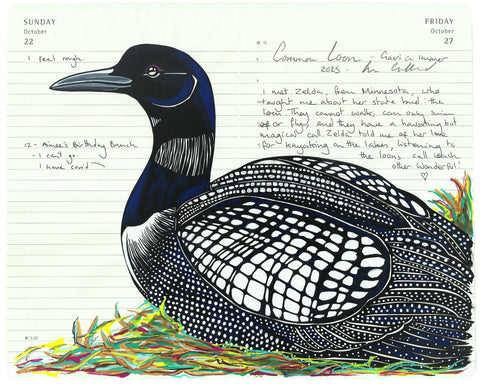 SUNDAY
October
22
I feel rough.
12 - Aimee's Birthday Brunch
- I can't go.
I have covid
FRIDAY
October
27
Common Loon - Gavia immer
2025 -
I met Zelda, from Minnesota, who
taught me about her state bird - the
loon. They cannot walk, can only swim
or fly and they have a haunting but
magical call. Zelda told me of her love
for kayaking on the lakes, listening to
the loons call each
other. Wonderful!
♡